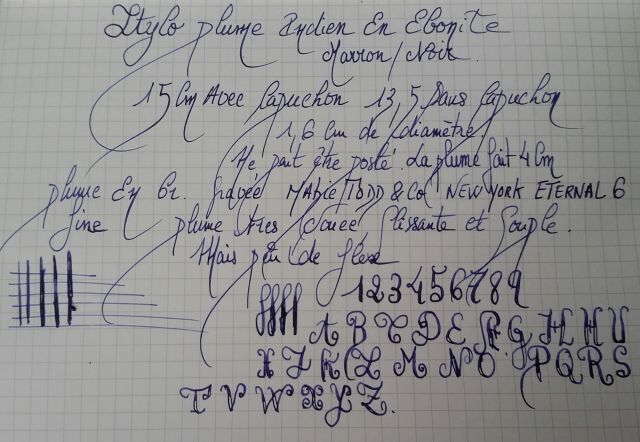 Stylo plume Indien En Ebonite
Marron/Noir.
15 Cm Avec Capuchon 13,5 Sans Capuchon
1,6 Cm de diamètre
Ne peut être posté. La plume fait 4 Cm
plume En Or. Gravée MABIE TODD & Co NEW YORK ETERNAL 6
fine plume très douce, Glissante et Souple.
Mais peu de flexe
123456789
A B C D E F G H
K L M N O P Q R S
T V W X Y Z.